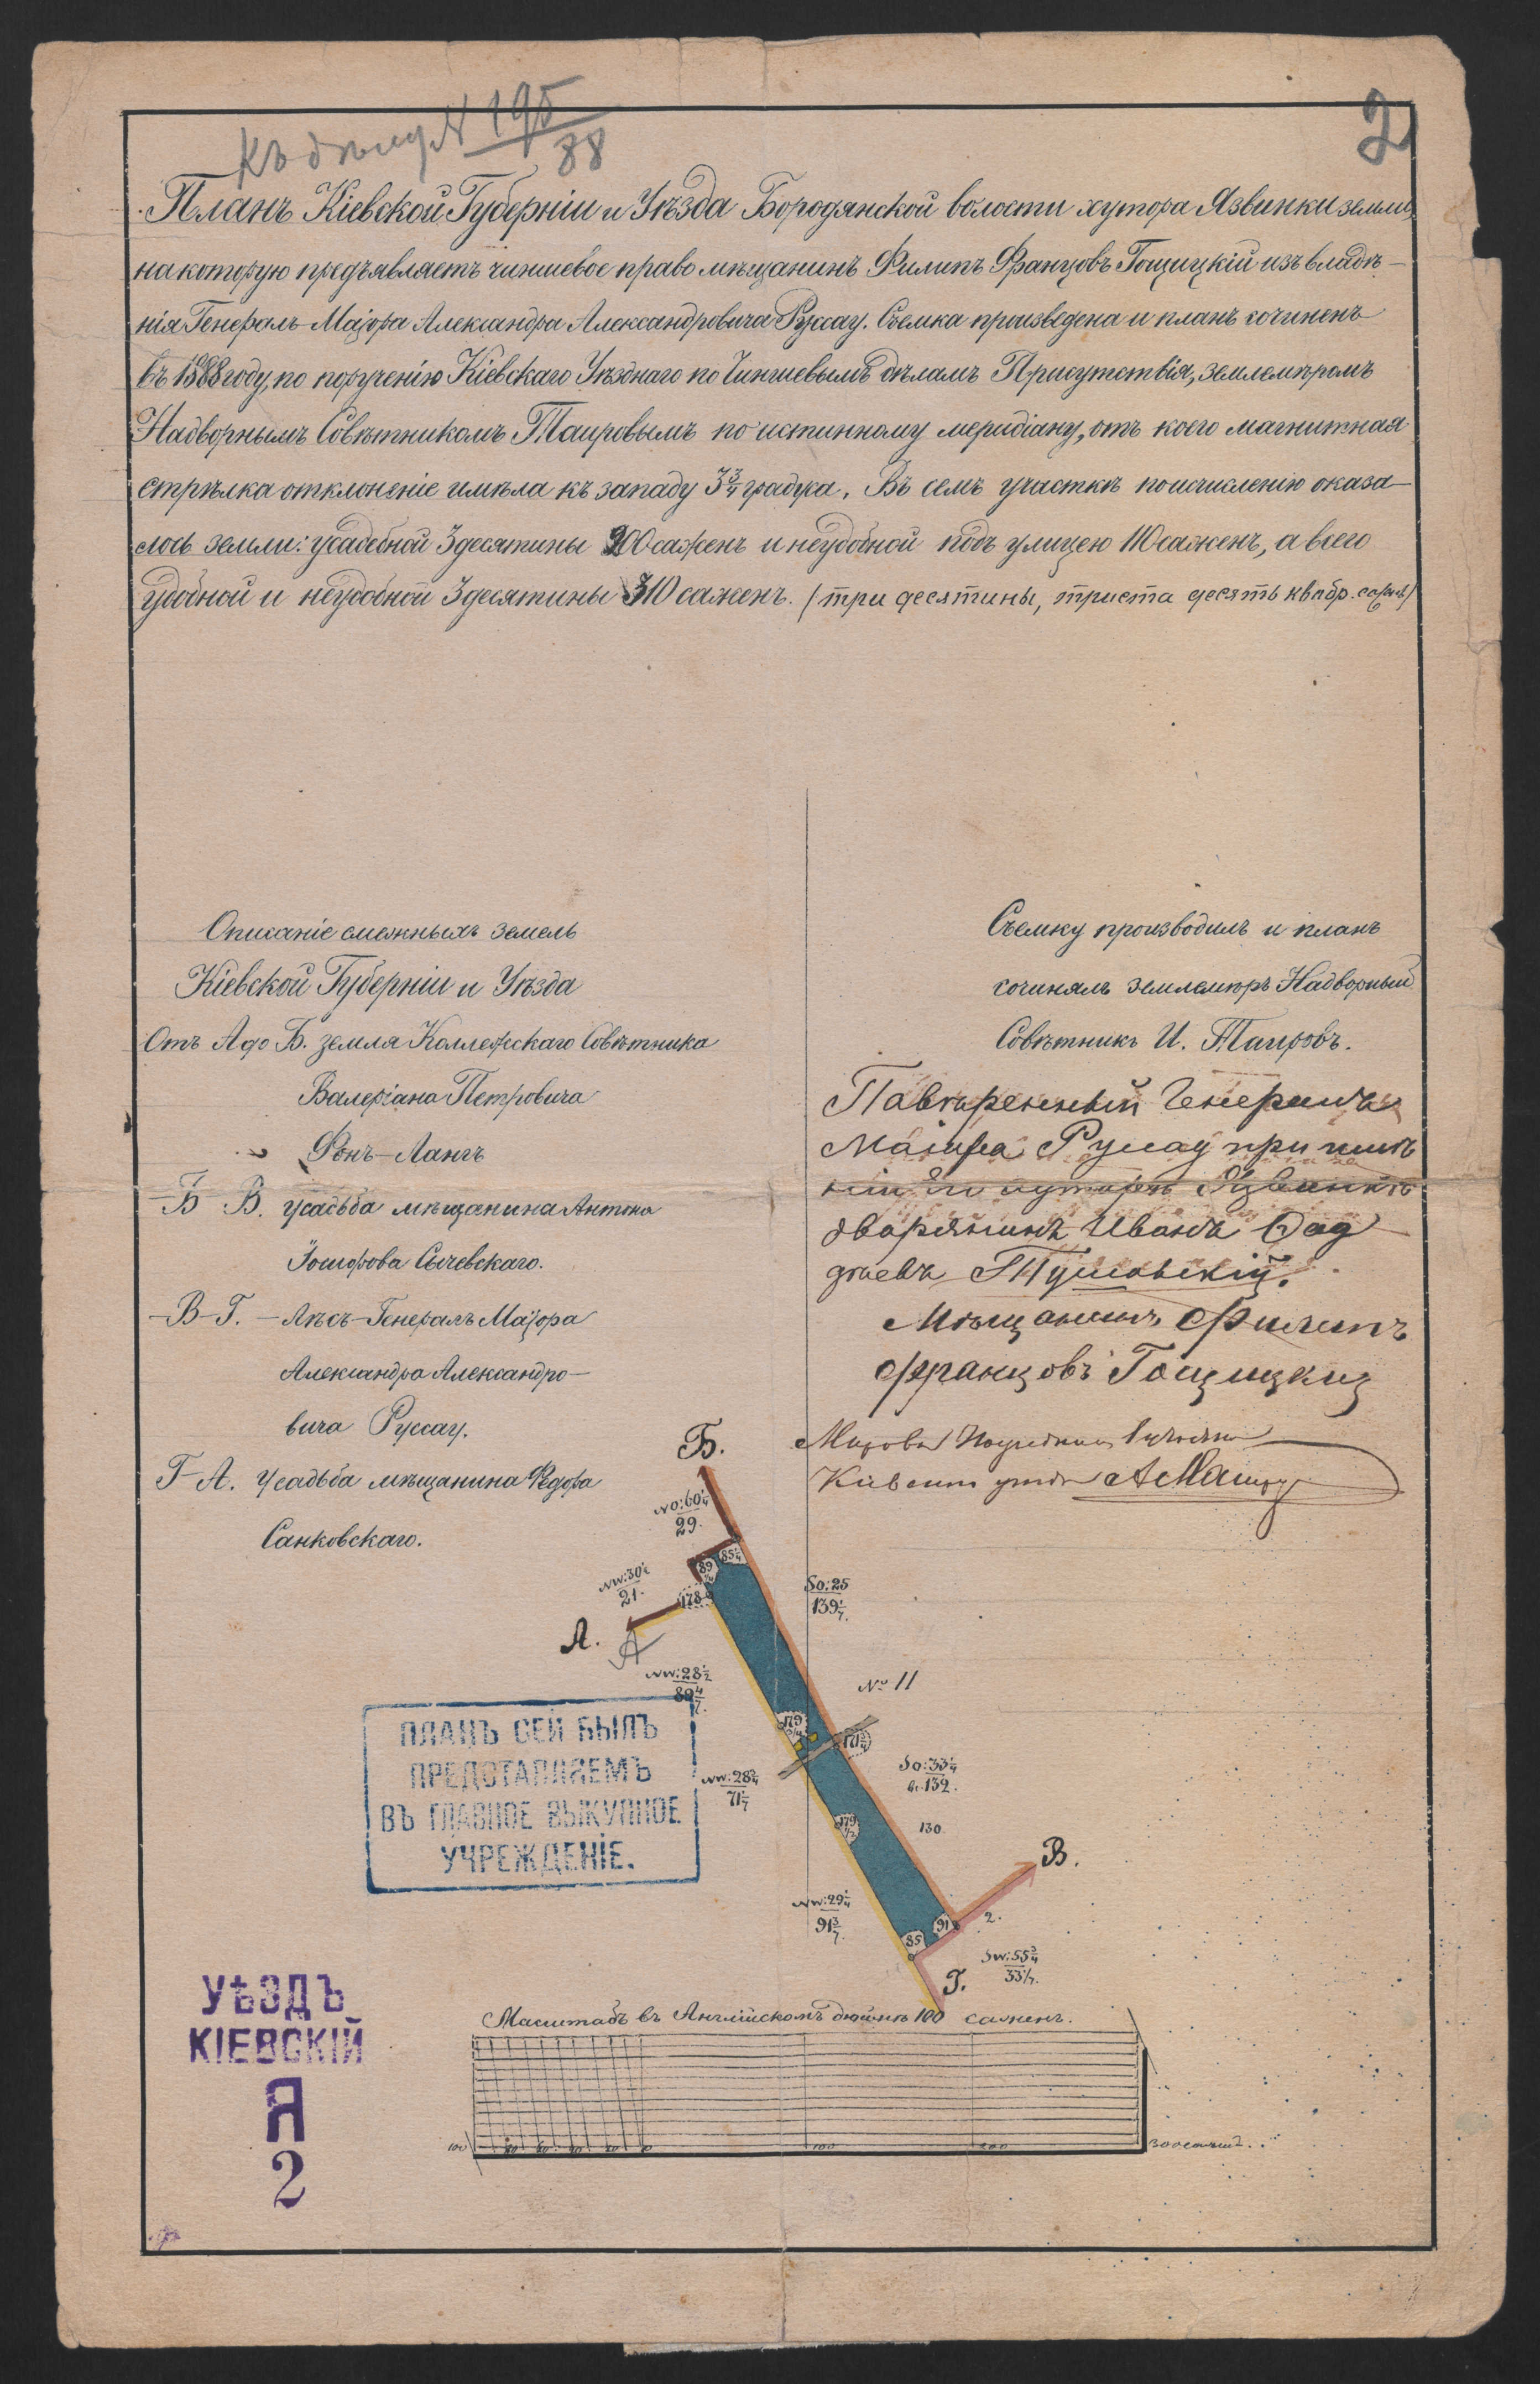 Къ дѣлу № 195/88
2
Планъ Кіевской Губерніи и Уѣзда Бородянской волости хутора Язвинки земли,
на которую предъявляетъ чиншевое право мѣщанинъ Филипъ Францовъ Гощицкій изъ владѣ-
нія Генералъ-Маіора Александра Александровича Руссау. Съемка произведена и планъ сочиненъ
въ 1888 году, по порученію Кіевскаго Уѣзднаго по Чиншевымъ дѣламъ Присутствія, землемѣромъ
Надворнымъ Совѣтникомъ Таировымъ по истинному меридіану, отъ коего магнитная
стрѣлка отклоненіе имѣла къ западу 3¾ градуса. Въ семъ участкѣ по исчисленію оказа-
лось земли: усадебной 3 десятины 200 сажень и неудобной подъ улицею 110 сажень, а всего
удобной и неудобной 3 десятины 310 сажень. (три десятины, триста десять квадр. сажень)
Описаніе смежныхъ земель
Кіевской Губерніи и Уѣзда
Отъ А до Б. земля Коллежскаго Совѣтника
Валеріана Петровича
Фонъ-Лангъ
– Б – В. усадьба мѣщанина Антона
Іосифова Сычевскаго.
– В – Г. – лѣсъ Генералъ Маіора
Александра Александро-
вича Руссау.
Г – А. Усадьба мѣщанина Федора
Санковскаго.
Съемку производилъ и планъ
сочинялъ землемѣръ Надворный
Совѣтникъ И. Таировъ.
Павѣренный Генералъ
Маіора Русау при имѣ
ніи его хуторѣ Язвинкѣ
дварянинъ Иванъ Фад
дѣевъ
Мѣщанинъ Филипъ
Францовъ Гощицкиі
Мировой Посредникъ 1 участка
Кіевскаго уѣзда
Б.
NO:60¼
29.
NW:30¼
21.
89¼
85¼
178
А.
А
SO:25
139 1/7.
NW:28½
89 4/7.
№ 11
179¾
171¾
NW:28¾
71 1/7
SO:33¼
132.
179½
130.
В.
NW:29¼
91 3/7
85
91
2.
SW:55¾
33 1/7.
Г.
ПЛАНЪ СЕЙ БЫЛЪ
ПРЕДСТАВЛЯЕМЪ
ВЪ ГЛАВНОЕ ВЫКУПНОЕ
УЧРЕЖДЕНІЕ.
УѢЗДЪ
КІЕВСКІЙ
Я
2
Масштабъ въ Англійскомъ дюймѣ 100 сажень.
100 80 60 40 20 0 100 200 300 сажень.